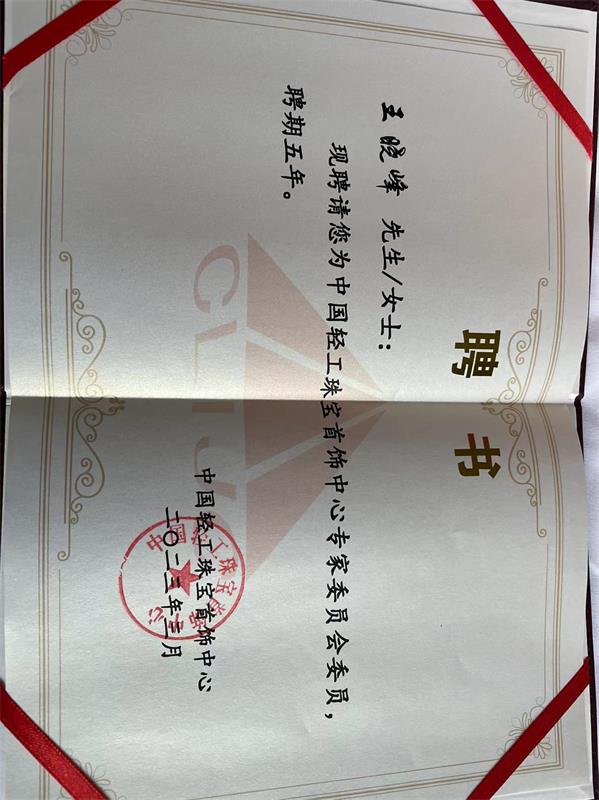 聘书
王晓峰 先生/女士：
现聘请您为中国轻工珠宝首饰中心专家委员会委员，
聘期五年。
中国轻工珠宝首饰中心
二〇二三年三月